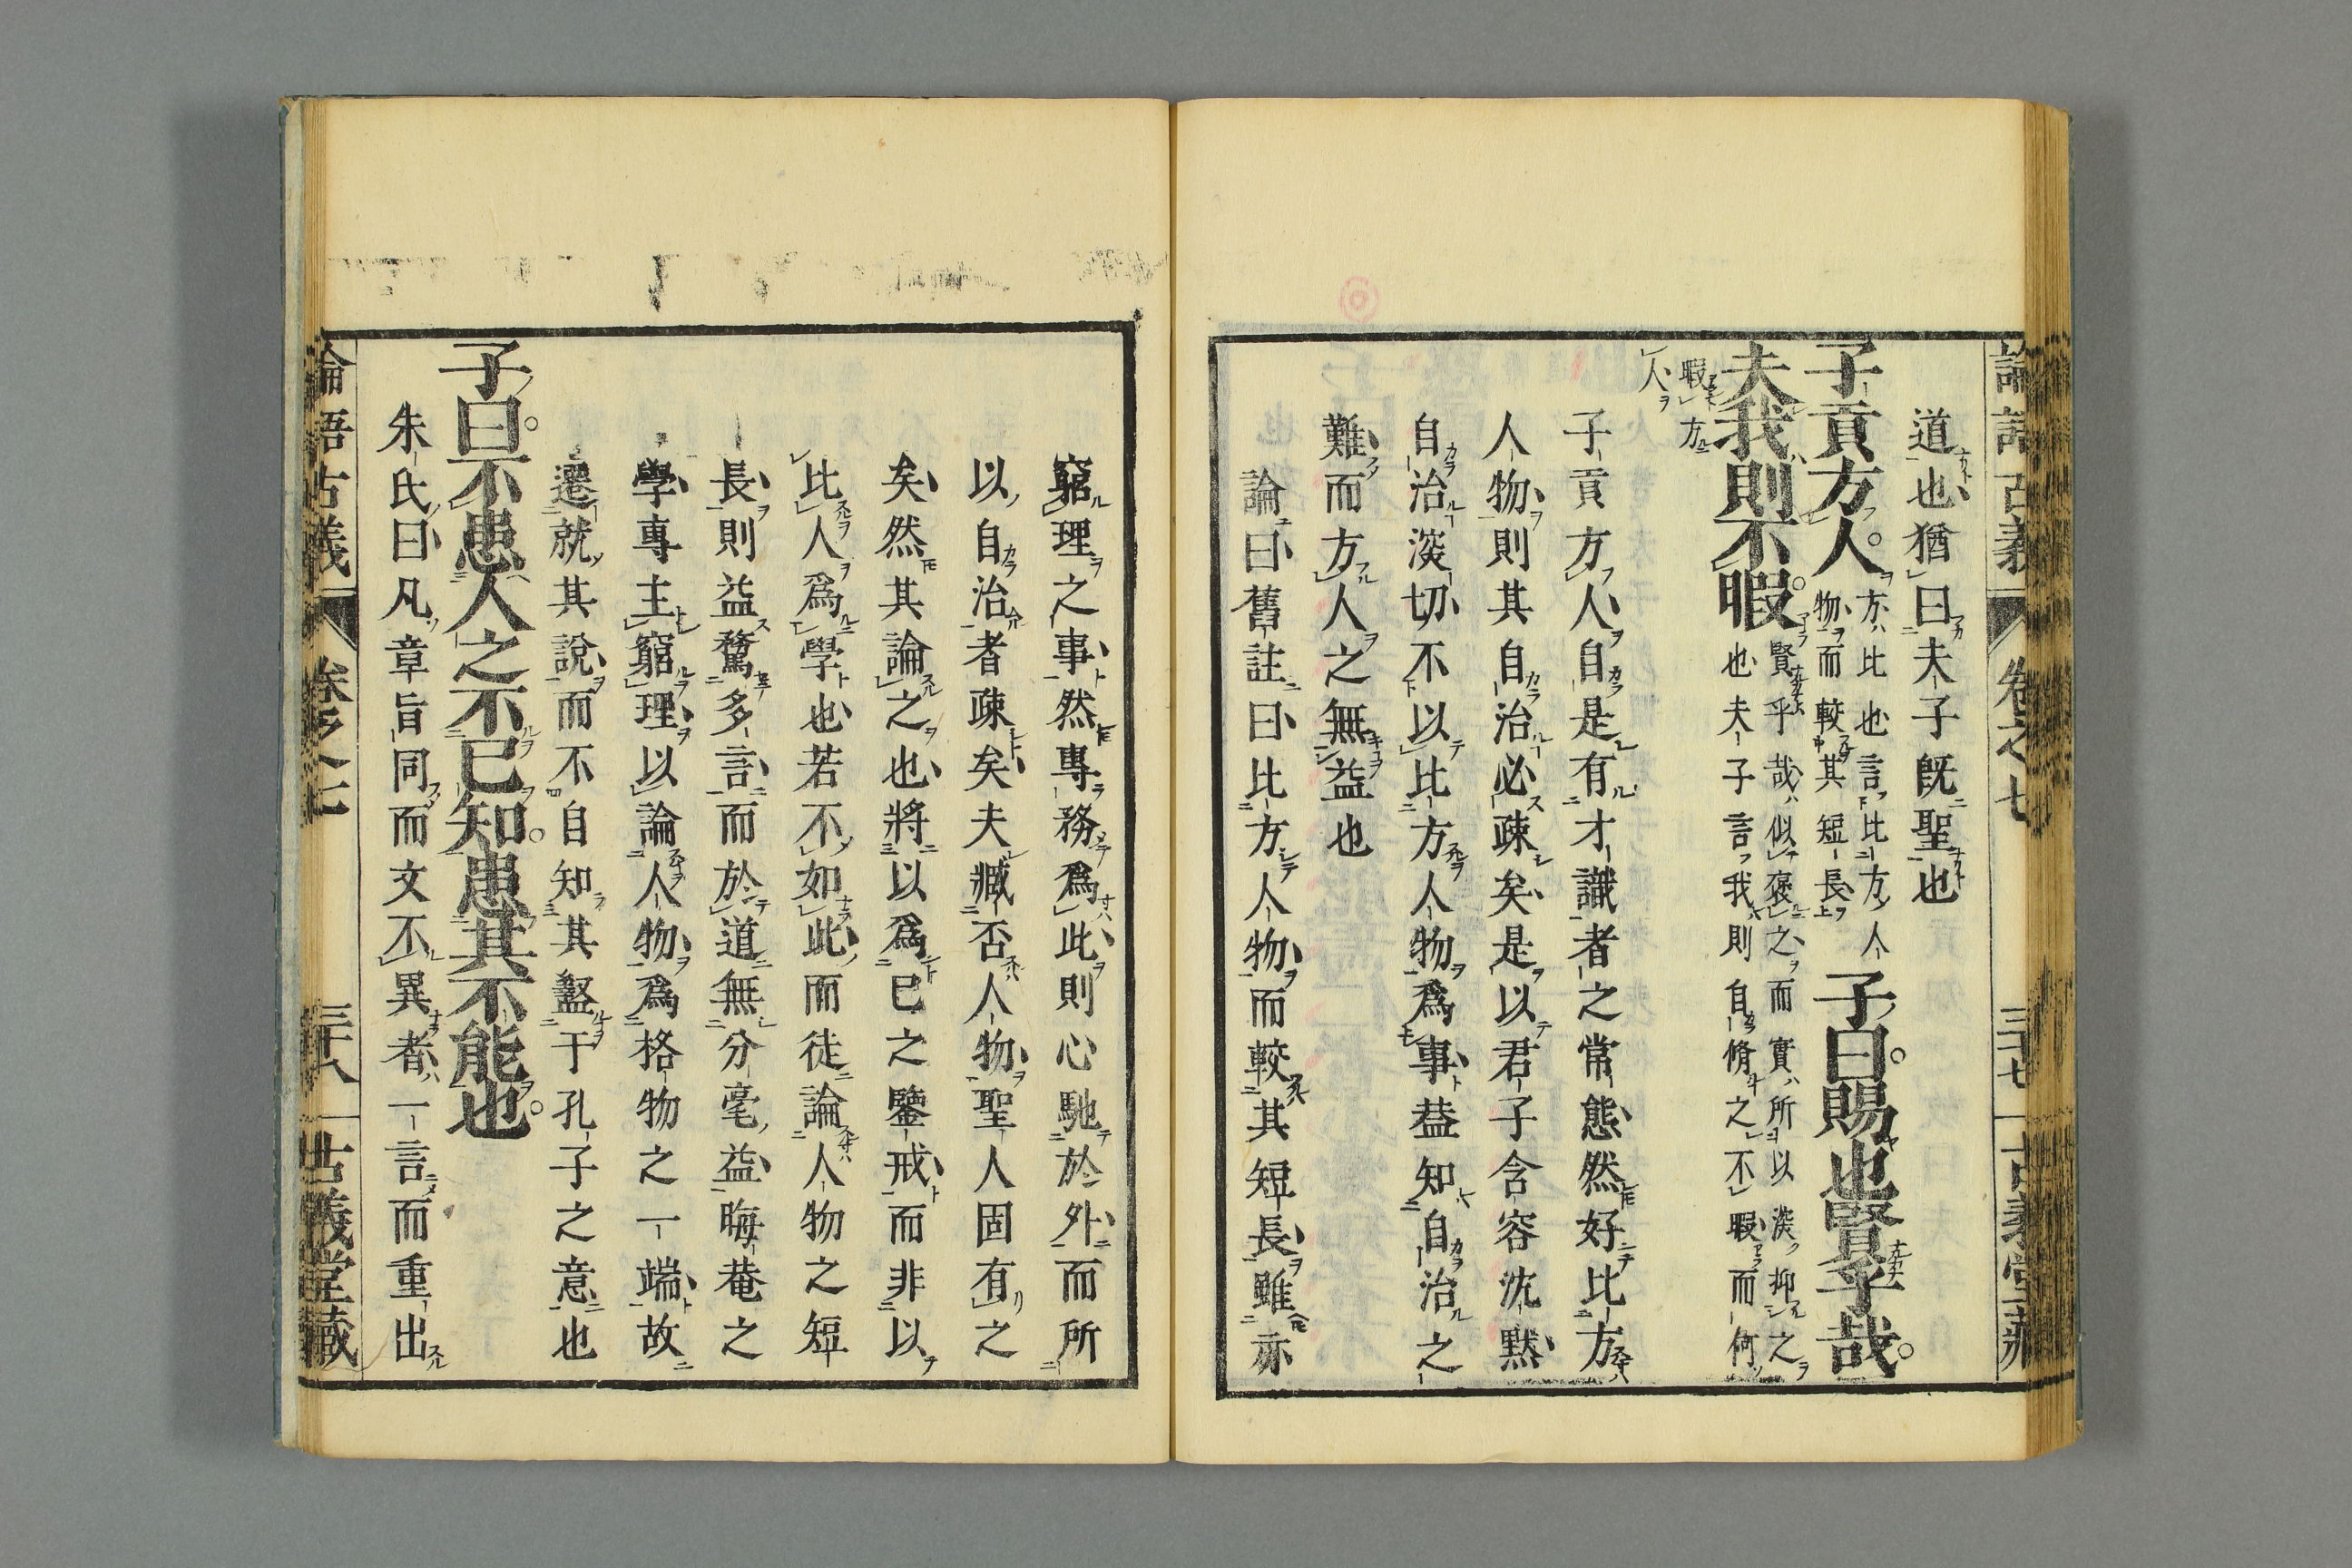 道也猶曰夫子既聖也
子貢方人。
方比也言比方人
物而較其短長
子曰。賜也賢乎哉。
夫我則不暇。
賢乎哉似褒之而實所以深抑之
也夫子言我則自脩之不暇而何
暇方
人
子貢方人自是有才識者之常態然好比方
人物則其自治必疎矣是以君子含容沈黙
自治深切不以比方人物爲事葢知自治之
難而方人之無益也
論曰舊註曰比方人物而較其短長雖亦
論語古義 卷之七 三十七 古義堂藏
窮理之事然專務爲此則心馳於外而所
以自治者疎矣夫臧否人物聖人固有之
矣然其論之也將以爲己之鑒戒而非以
比人爲學也若不如此而徒論人物之短
長則益騖多言而於道無分毫益晦菴之
學專主窮理以論人物爲格物之一端故
遷就其說而不自知其盭于孔子之意也
子曰。不患人之不已知。患其不能也。
朱氏曰凡章旨同而文不異者一言而重出
論語古義 卷之七 三十八 古義堂藏